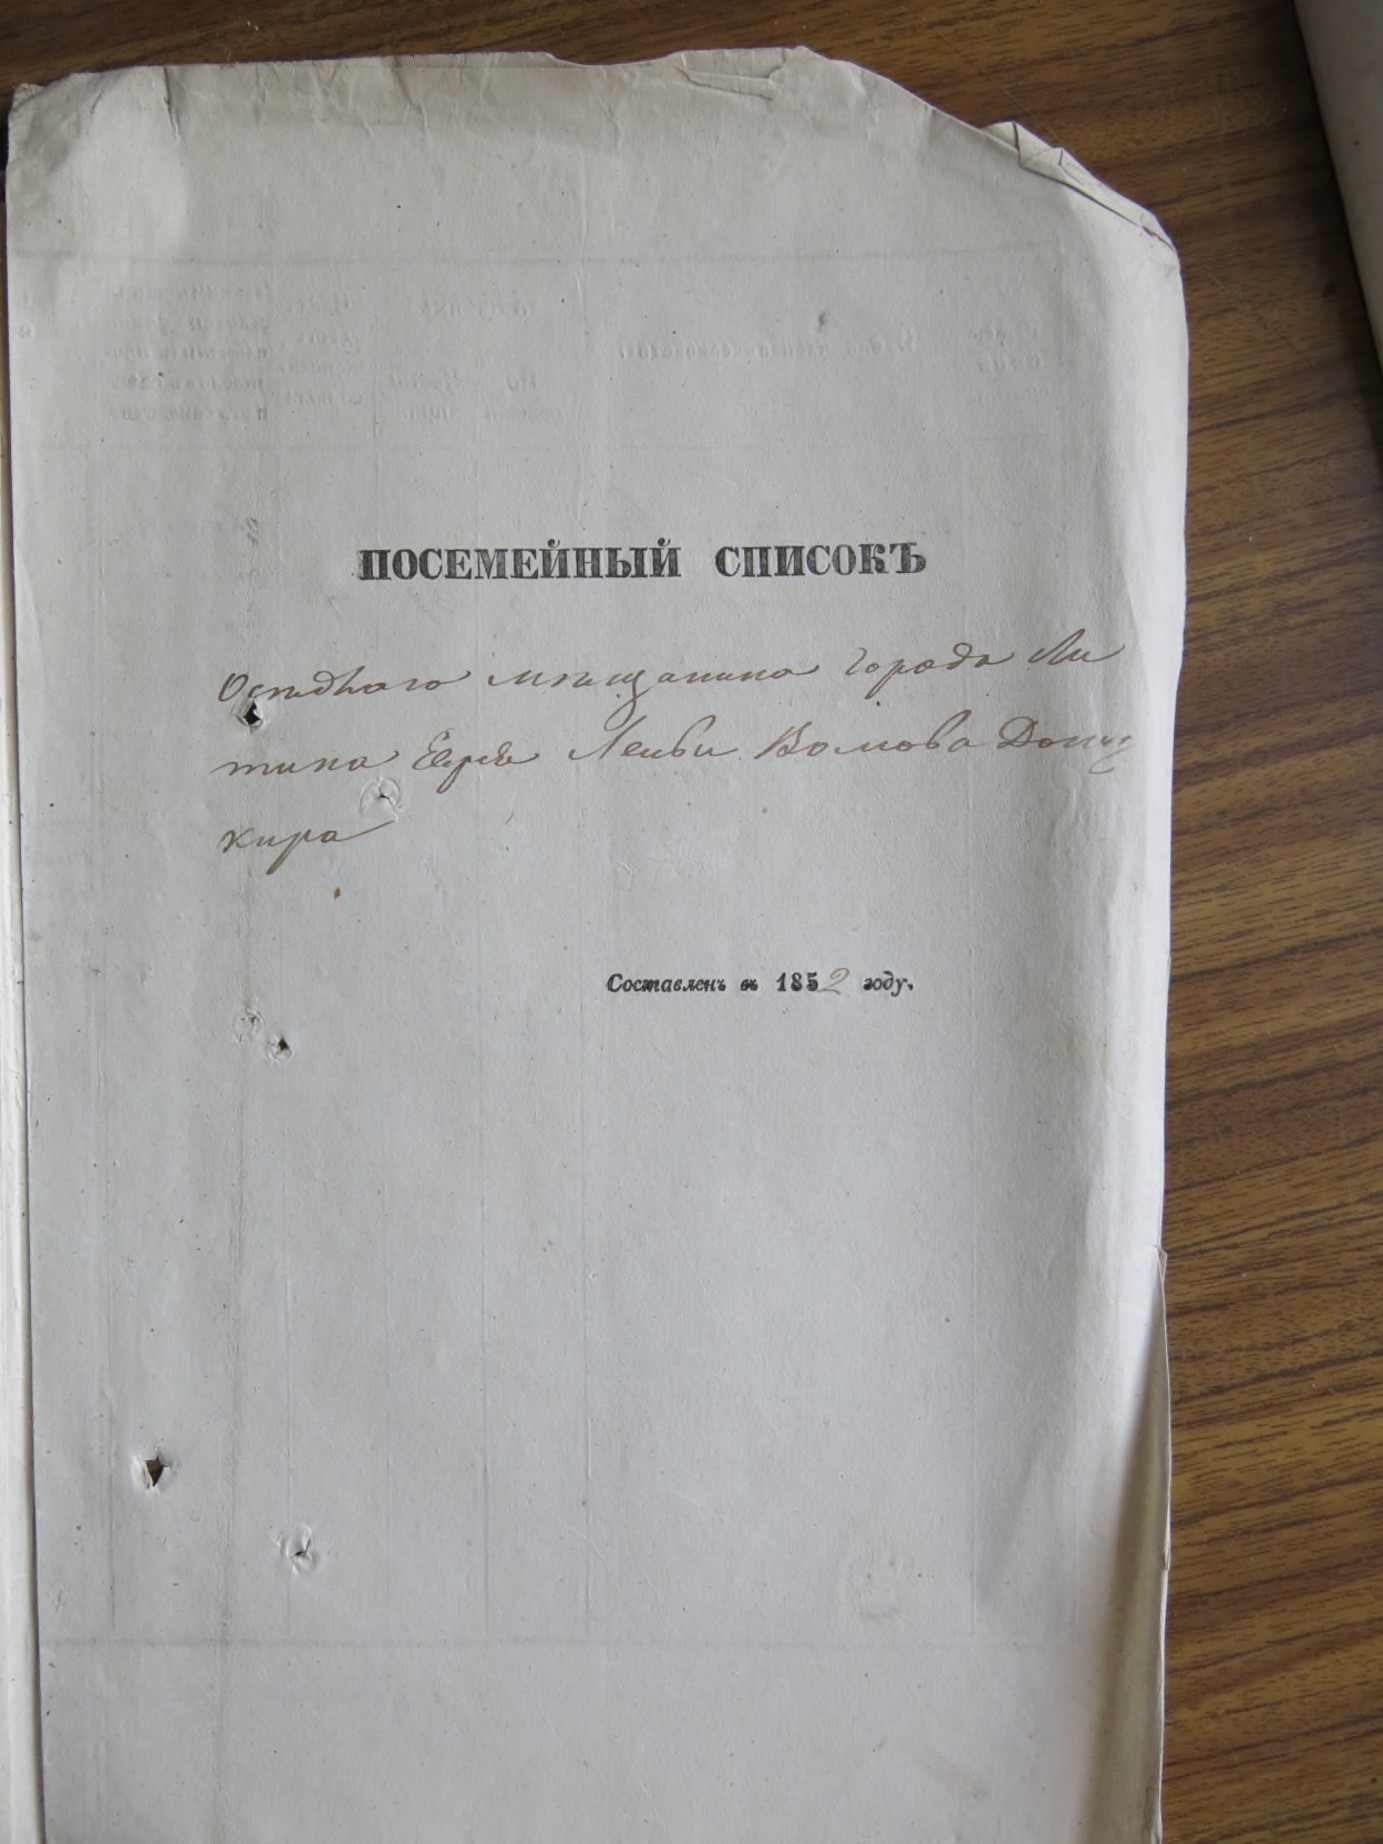 ПОСЕМЕЙНЫЙ СПИСОКЪ
Осѣдлаго мѣщанина города Ли
тина Еврея Лейби Волшова
кира
Составленъ въ 1852 году.